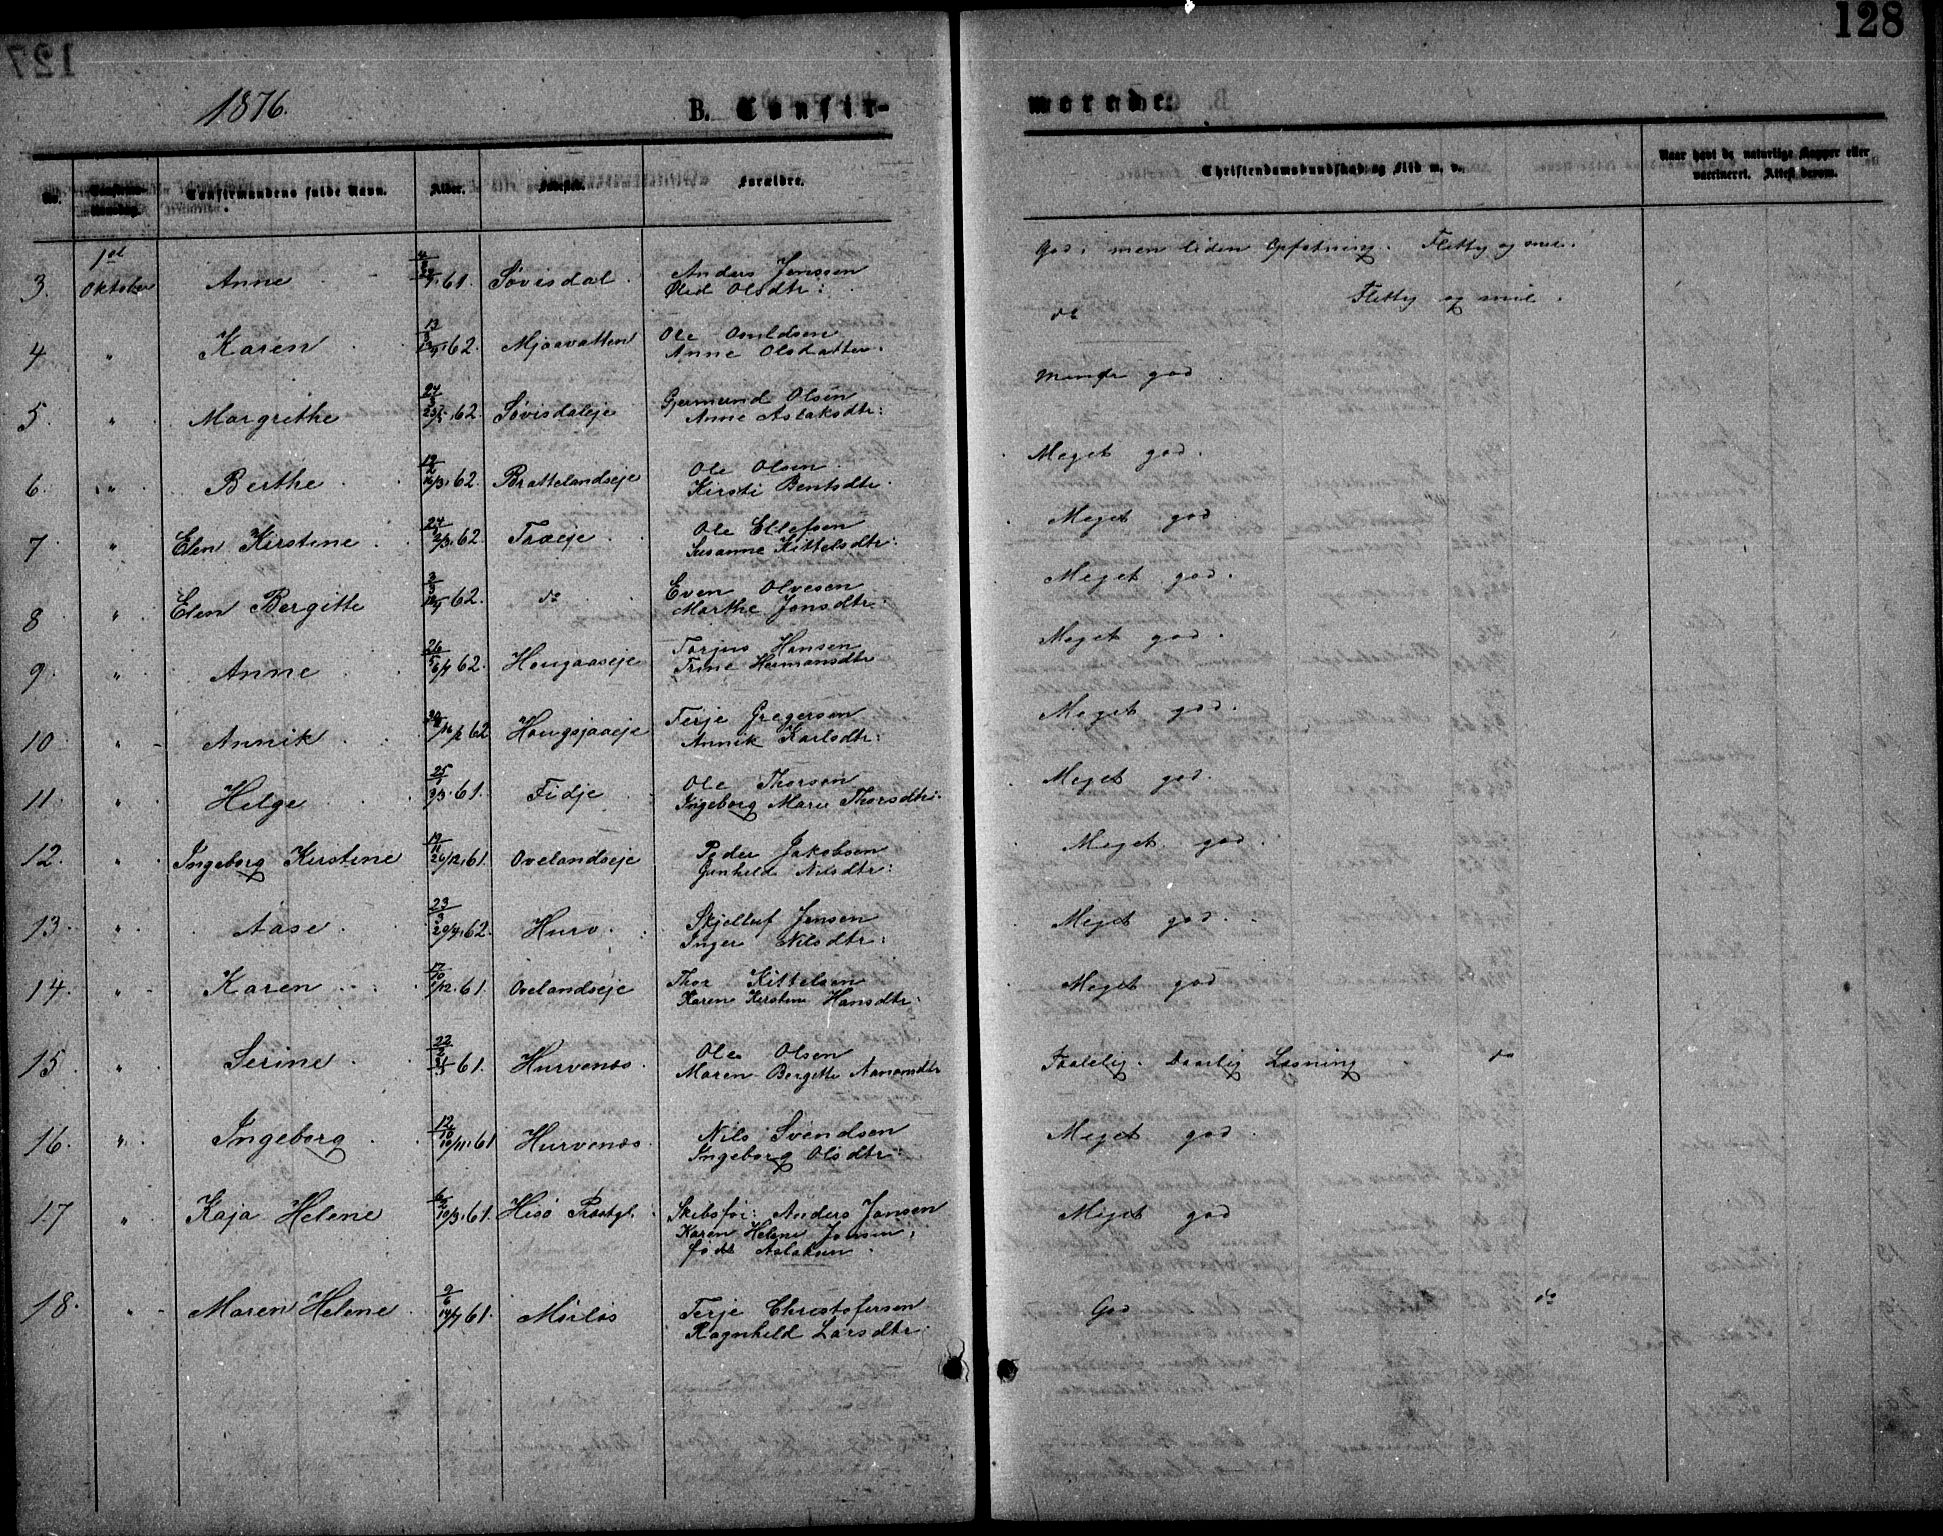 127
128
1876.
B. Confir-
merede.
No.
Confirmandens fulde Navn.
Alder.
Forældre.
Christendomskundskab og Flid m. v.
Naar havt de naturlige Kopper eller
vaccineret. Attest derom.
1st
3. Oktober Anne 61. Søvisdal. Anders Jenssen
Olsdtr:
God, men liden Opfatning. Flittig og snil.
4 " Karen 13/3 62. Mjaavatten Ole
Anne Olsdatter.
do Flittig og snil.
5. " Margrethe 24/3 62. Søvisdaleje Gjermund Olsen
Anne Aslaksdtr:
Mindre god.
6. " Berthe 19/2 16/3 62 Brattelandseje Ole Olsen
Kirsti Bentsdtr.
Meget god.
7 " Elen Kirstine 24/2 62. Træeje Ole Ellefsen
Susanne Kittelsdtr:
Meget god
8 " Elen Bergitte 62. do Even Olvesen
Marthe Jensdtr:
Meget god.
9. " Anne 62. Hougaaseje Torjus Hansen
Trine Hermansdtr
Meget god.
10 " Annik 62 Hougsjaaeje Terje Gregersen
Annik Karlsdtr:
Meget god.
11. " Helge 61. Fidje Ole Thorsen
Ingeborg Marie Thorsdtr:
Meget god.
12. " Ingeborg Kirstine 19/11 26/12 61. Ovelandseje Peder Jakobsen
Gunhild Nilsdtr:
Meget god
13. " Aase 23/3 62. Hurv. Skjelluf Jensen
Inger Nilsdtr:
Meget god.
14. " Karen 17/10 61. Ovelandseje Thor Kittelsen
Karen Kirstine Hansdtr.
Meget god
15. " Serine 22/2 61. Hurvenæs. Ole Olsen
Maren Bergitte
Taalelig. Daarlig Læsning do
16. " Ingeborg 12/10 10/11 61 Hurvenæs. Nils Svendsen
Ingeborg Olsdtr:
Meget god.
17 " Kaja Helene 10/3 61. Hisø Præstgl. Skibsfør: Anders Jensen
Karen Helene Jensen,
født Aslaksen.
Meget god
18. " Maren Helene 9/6 14/7 61. Terje Christofersen
Ragnhild Larsdtr.
God do